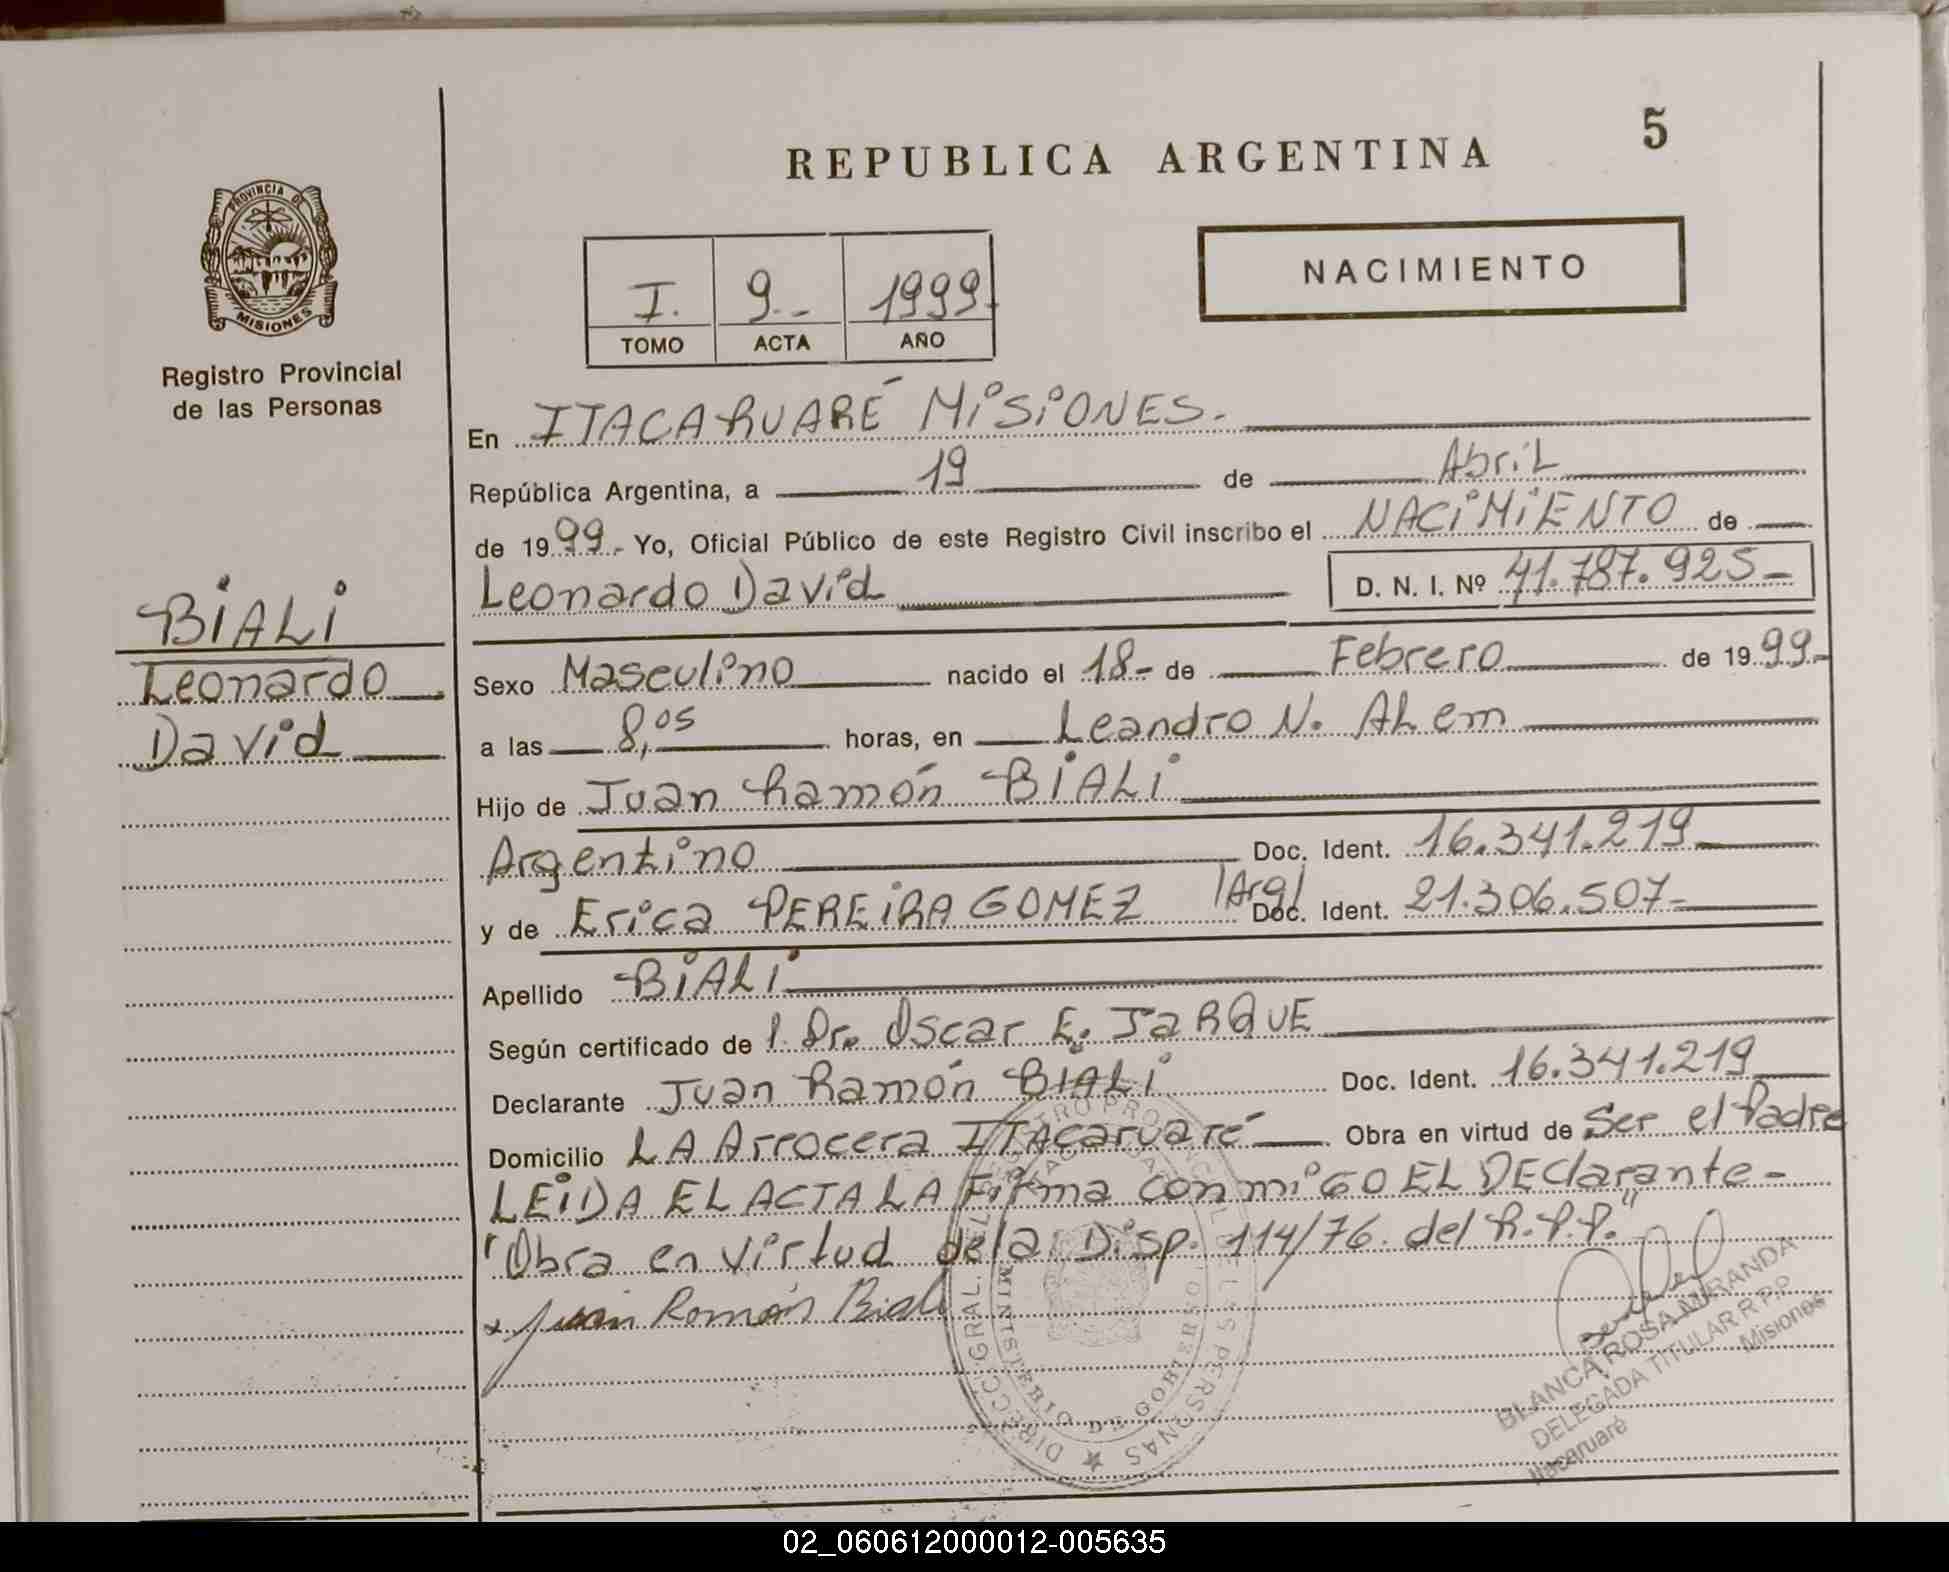 5
REPUBLICA ARGENTINA
PROVINCIA DE
MISIONES
Registro Provincial
de las Personas
NACIMIENTO
I. 9.- 1999.
TOMO ACTA AÑO
En ITACARUARÉ MISIONES.
República Argentina, a 19 de Abril
de 1999.- Yo, Oficial Público de este Registro Civil inscribo el NACIMIENTO de
Leonardo David D. N. I. Nº 41.787.925-
BIALI
Leonardo
David
Sexo Masculino nacido el 18- de Febrero de 1999.-
a las 8,05 horas, en Leandro N. ALem
Hijo de Juan Ramón BIALI
Argentino Doc. Ident. 16.341.219
y de Erica PEREIRA GOMEZ /Arg/ Doc. Ident. 21.306.507-
Apellido BIALI
Según certificado de l. Dr. Oscar E. JaRQUE
Declarante Juan Ramón BIALI Doc. Ident. 16.341.219
Domicilio LA Arrocera ITACaruaré Obra en virtud de Ser el Padre
LEIDA EL ACTA LA Firma conmigo EL DEClarante-
"Obra en virtud dela Disp. 114/76. del R.P.P."
x Juan Román Biali
DIRECC. GRAL. DEL REGISTRO PROVINCIAL DE LAS PERSONAS
MINISTERIO DE GOBIERNO
BLANCA ROSA MIRANDA
DELEGADA TITULAR R.P.P.
Itacaruaré Misiones
02_060612000012-005635